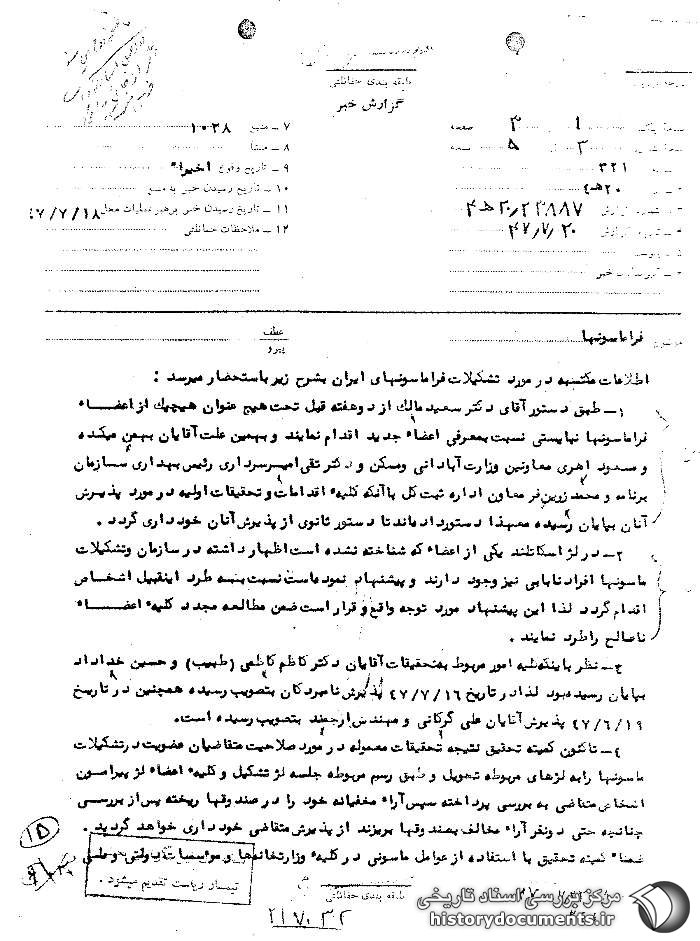 طبقه بندی حفاظتی
گزارش خبر
۷ - منبع ۱۰۳۸
۸ - منشأ
۹ - تاریخ وقوع اخیراً
۱۰ - تاریخ رسیدن خبر به منبع
۱۱ - تاریخ رسیدن خبر برهبر عملیات محل ۴۷/۷/۱۸
۱۲ - ملاحظات حفاظتی
۱ ۳ صفحه
۳ ۵ نسخه
۳۲۱
۲۰ه‍۴
گزارش ۲۰/۲۳۸۸۷ه‍۴
گزارش ۴۷/۷/۲۰
خبر
فراماسونها
عطف
پیرو
اطلاعات مکتسبه در مورد تشکیلات فراماسونهای ایران بشرح زیر باستحضار میرسد :
۱- طبق دستور آقای دکتر سعید مالک از دوهفته قبل تحت هیچ عنوان هیچیک از اعضاء
فراماسونها نبایستی نسبت بمعرفی اعضاء جدید اقدام نمایند و بهمین علت آقایان بهمن میکده
و مسعود اهری معاونین وزارت آبادانی ومسکن و دکتر تقی امیرسرداری رئیس بهداری سازمان
برنامه و محمد زرین فر معاون اداره ثبت کل با آنکه کلیه اقدامات و تحقیقات اولیه در مورد پذیرش
آنان بپایان رسیده معهذا دستور داده‌اند تا دستور ثانوی از پذیرش آنان خودداری گردد .
۲- در لژ اسکاتلند یکی از اعضاء که شناخته نشده است اظهار داشته در سازمان وتشکیلات
ماسونها افراد نابابی نیز وجود دارند و پیشنهاد نموده‌است نسبت بسه طرد اینقبیل اشخاص
اقدام گردد لذا این پیشنهاد مورد توجه واقع و قرار است ضمن مطالعه مجدد کلیه اعضاء
ناصالح را طرد نمایند .
ج- نظر باینکه کلیه امور مربوط به تحقیقات آقایان دکتر کاظم کاظمی (طبیب) و حسین خداداد
بپایان رسیده بود لذا در تاریخ ۴۷/۷/۱۶ پذیرش نامبردگان بتصویب رسیده همچنین در تاریخ
۴۷/۶/۱۹ پذیرش آقایان علی گرکانی و مهندس ارجمند بتصویب رسیده است.
۴- تاکنون کمیته تحقیق نتیجه تحقیقات معموله در مورد صلاحیت متقاضیان عضویت در تشکیلات
ماسونها را به لژهای مربوطه تحویل و طبق رسم مربوطه جلسه لژ تشکیل و کلیه اعضاء لژ پیرامون
اشخاص متقاضی به بررسی پرداخته سپس آراء مخفیانه خود را در صندوقها ریخته پس از بررسی
چنانچه حتی دونفر آراء مخالف بصندوقها بریزند از پذیرش متقاضی خودداری خواهد گردید .
ضمناً کمیته تحقیق با استفاده از عوامل ماسونی در کلیه وزارتخانه‌ها و مؤسسات دولتی و ملی
تیمسار ریاست تقدیم میشود .
طبقه بندی حفاظتی
۲۱۷۰۳۲
۱۵
مرکز بررسی اسناد تاریخی
historydocuments.ir